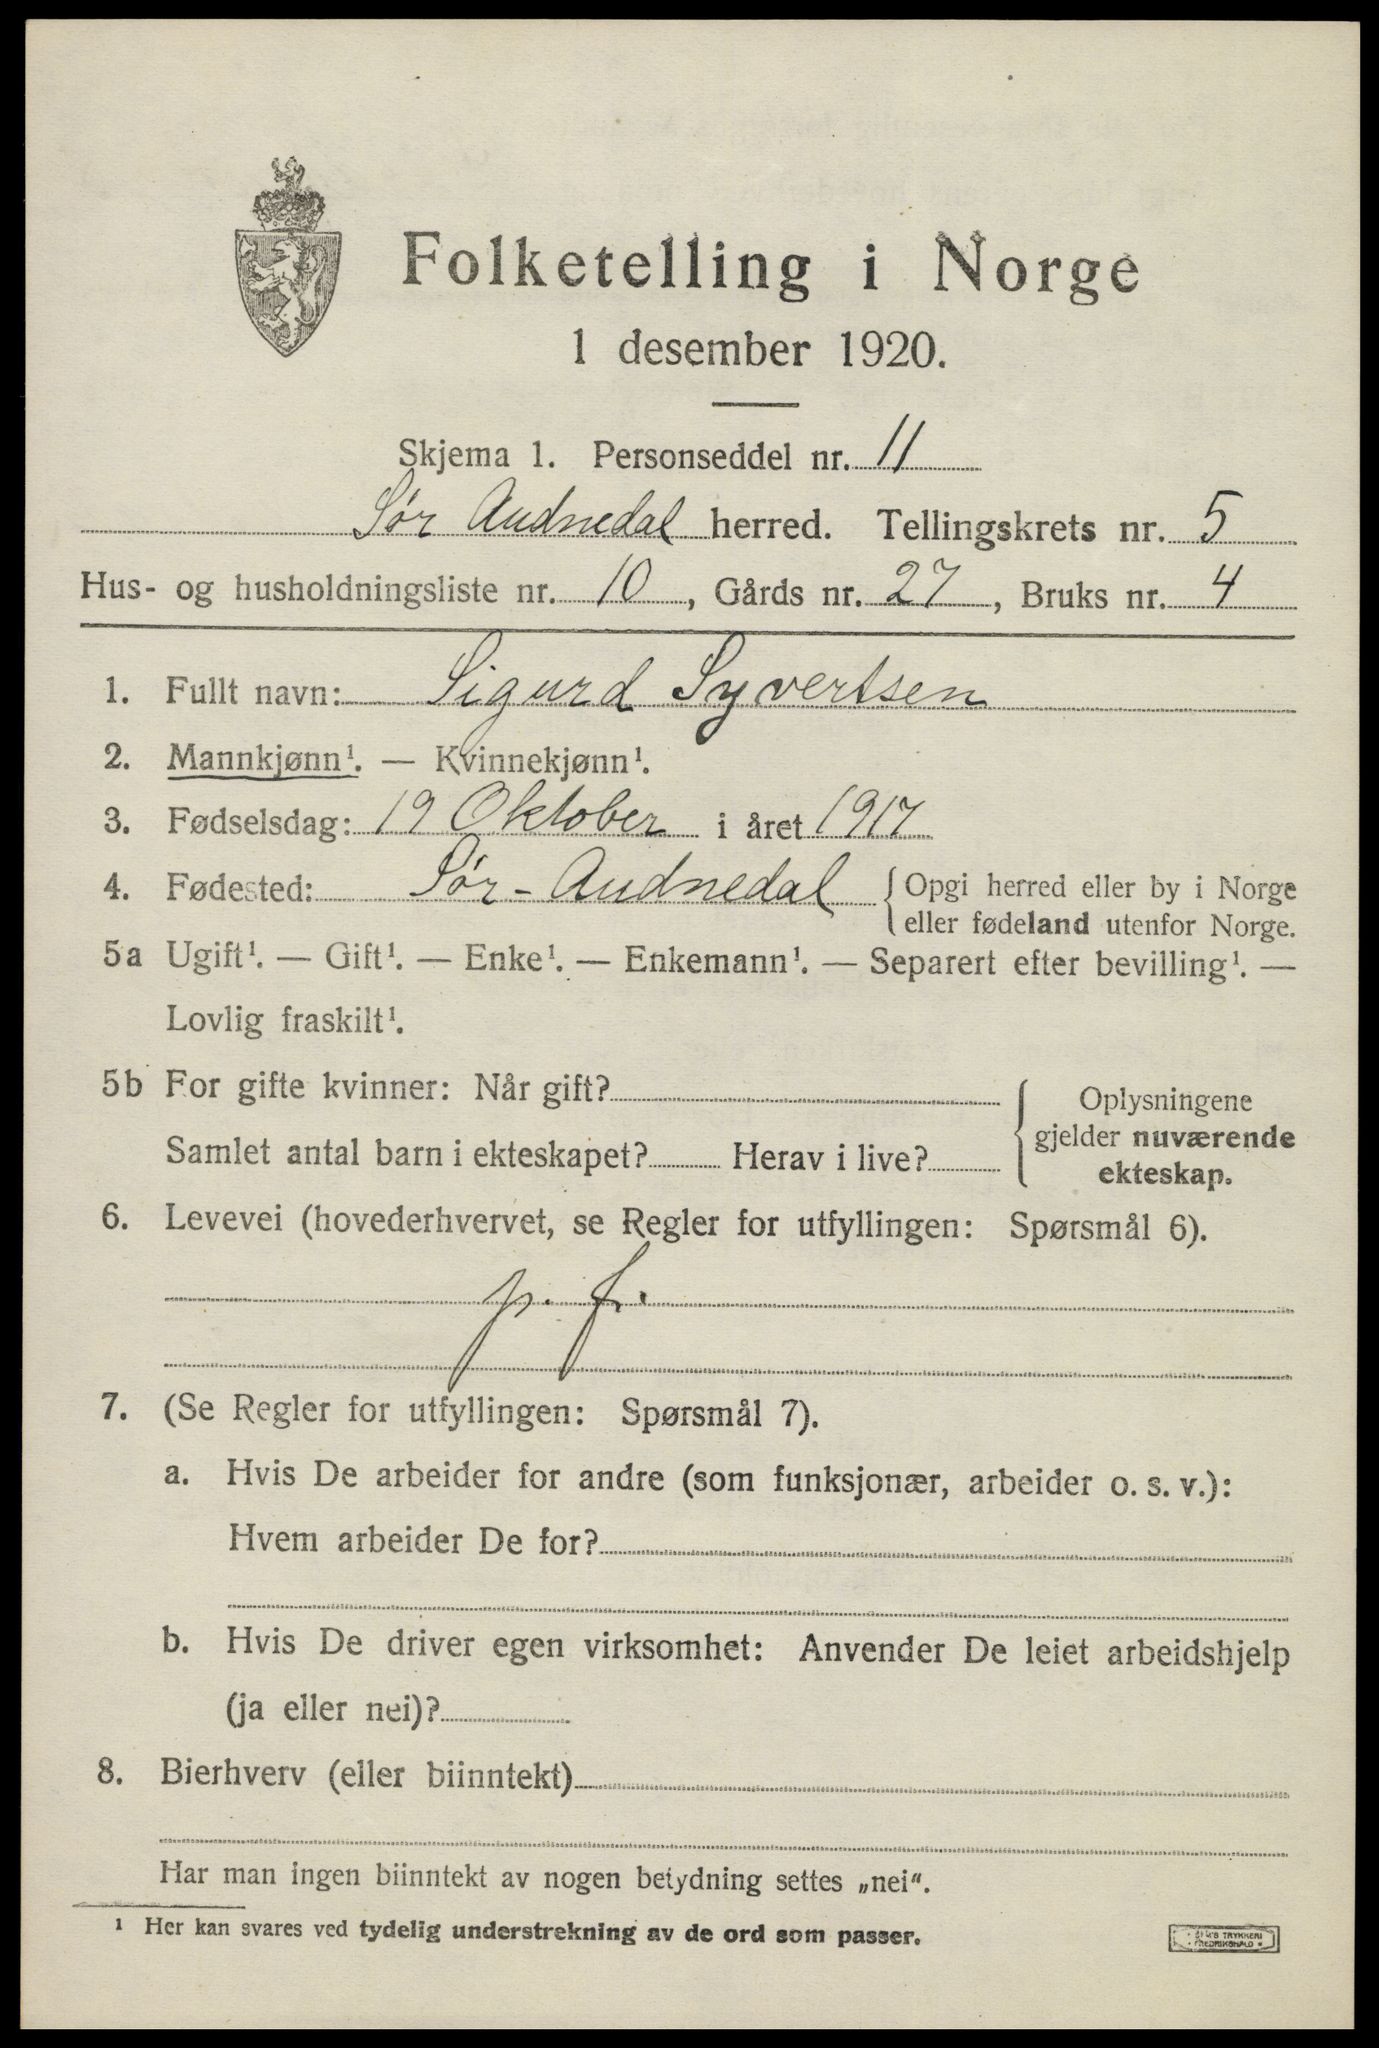 Folketelling i Norge
1 desember 1920.
Skjema 1. Personseddel nr. 11
Sør Audnedal herred. Tellingskrets nr. 5
Hus- og husholdningsliste nr. 10, Gårds nr. 27, Bruks nr. 4
1. Fullt navn: Sigurd Syvertsen
2. Mannkjønn¹. — Kvinnekjønn¹.
3. Fødselsdag: 19 Oktober i året 1917
4. Fødested: Sør-Audnedal
Opgi herred eller by i Norge
eller fødeland utenfor Norge.
5a Ugift¹. — Gift¹. — Enke¹. — Enkemann¹. — Separert efter bevilling¹. —
Lovlig fraskilt¹.
5b For gifte kvinner: Når gift?
Samlet antal barn i ekteskapet? Herav i live?
Oplysningene
gjelder nuværende
ekteskap.
6. Levevei (hovederhvervet, se Regler for utfyllingen: Spørsmål 6).
p. f.
7. (Se Regler for utfyllingen: Spørsmål 7).
a. Hvis De arbeider for andre (som funksjonær, arbeider o. s. v.):
Hvem arbeider De for?
b. Hvis De driver egen virksomhet: Anvender De leiet arbeidshjelp
(ja eller nei)?
8. Bierhverv (eller biinntekt)
Har man ingen biinntekt av nogen betydning settes „nei“.
¹ Her kan svares ved tydelig understrekning av de ord som passer.
TRYKKERI
FREDRIKSHALD